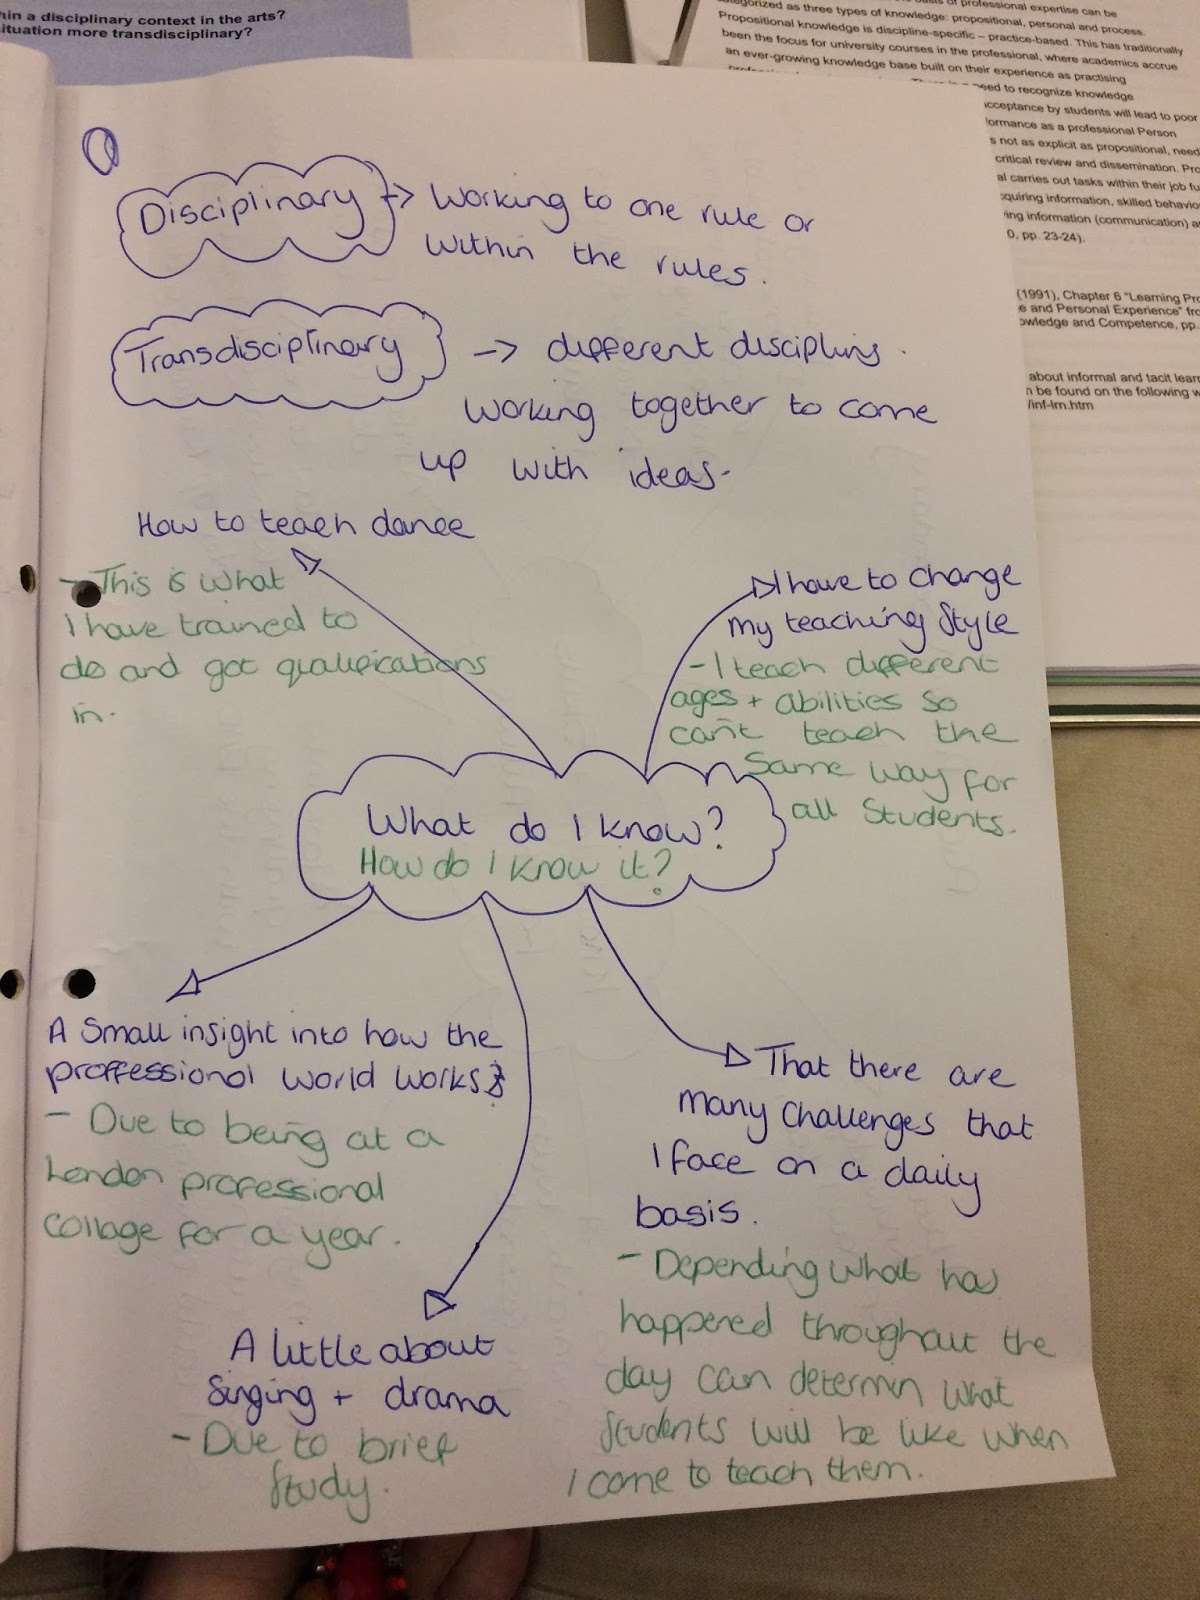 hin a disciplinary context in the arts?
ituation more transdisciplinary?
sis of professional expertise can be
egorized as three types of knowledge: propositional, personal and process.
Propositional knowledge is discipline-specific – practice-based. This has traditionally
been the focus for university courses in the professional, where academics accrue
an ever-growing knowledge base built on their experience as practising
need to recognize knowledge
acceptance by students will lead to poor
formance as a professional Person
s not as explicit as propositional, need
critical review and dissemination. Pro
al carries out tasks within their job fu
cquiring information, skilled behaviou
ing information (communication) a
0, pp. 23-24).
(1991), Chapter 6 "Learning Pro
e and Personal Experience" fro
owledge and Competence, pp.
about informal and tacit lear
n be found on the following w
/inf-lrn.htm
Disciplinary -> Working to one rule or
within the rules.
Transdisciplinary -> different displins.
working together to come
up with ideas-
How to teach dance
- This is what
I have trained to
do and got qualifications
in.
I have to change
my teaching style
- I teach different
ages + abilities so
can't teach the
same way for
all students.
What do I know?
How do I know it?
A small insight into how the
proffessional world works
- Due to being at a
London professional
collage for a year.
A little about
singing + drama
- Due to brief
study.
That there are
many challenges that
I face on a daily
basis.
- Depending what has
happened throughout the
day can determin what
students will be like when
I come to teach them.